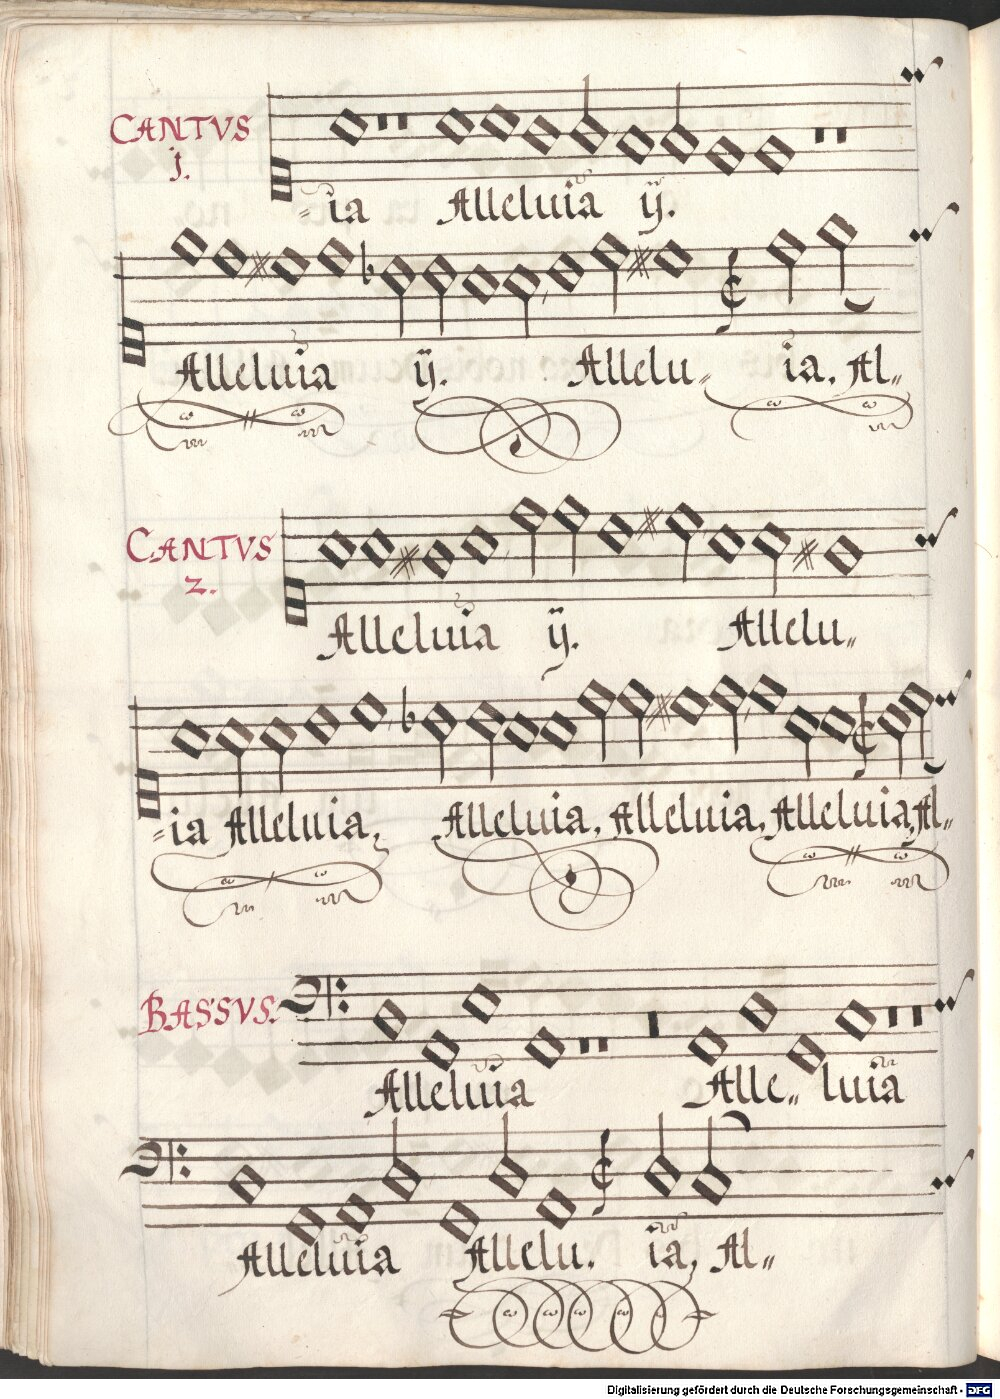 CANTVS
j.
=ia Alleluia ij.
Alleluia ij. Allelu„ ia. Al„
CANTVS
2.
Alleluia ij. Allelu„
=ia Alleluia, Alleluia, Alleluia, Alleluia, Al„
BASSVS.
Alleluia Alle„ luia
Alleluia Allelu. ia, Al„
Digitalisierung gefördert durch die Deutsche Forschungsgemeinschaft - DFG